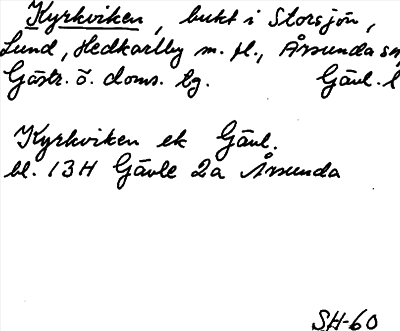 Kyrkviken, bukt i Storsjön,
Lund, Hedkarlby m. fl., Årsunda sn
Gästr. ö. doms. tg. Gävl. l
Kyrkviken ek Gävl.
bl. 13H Gävle 2a Årsunda
SH-60